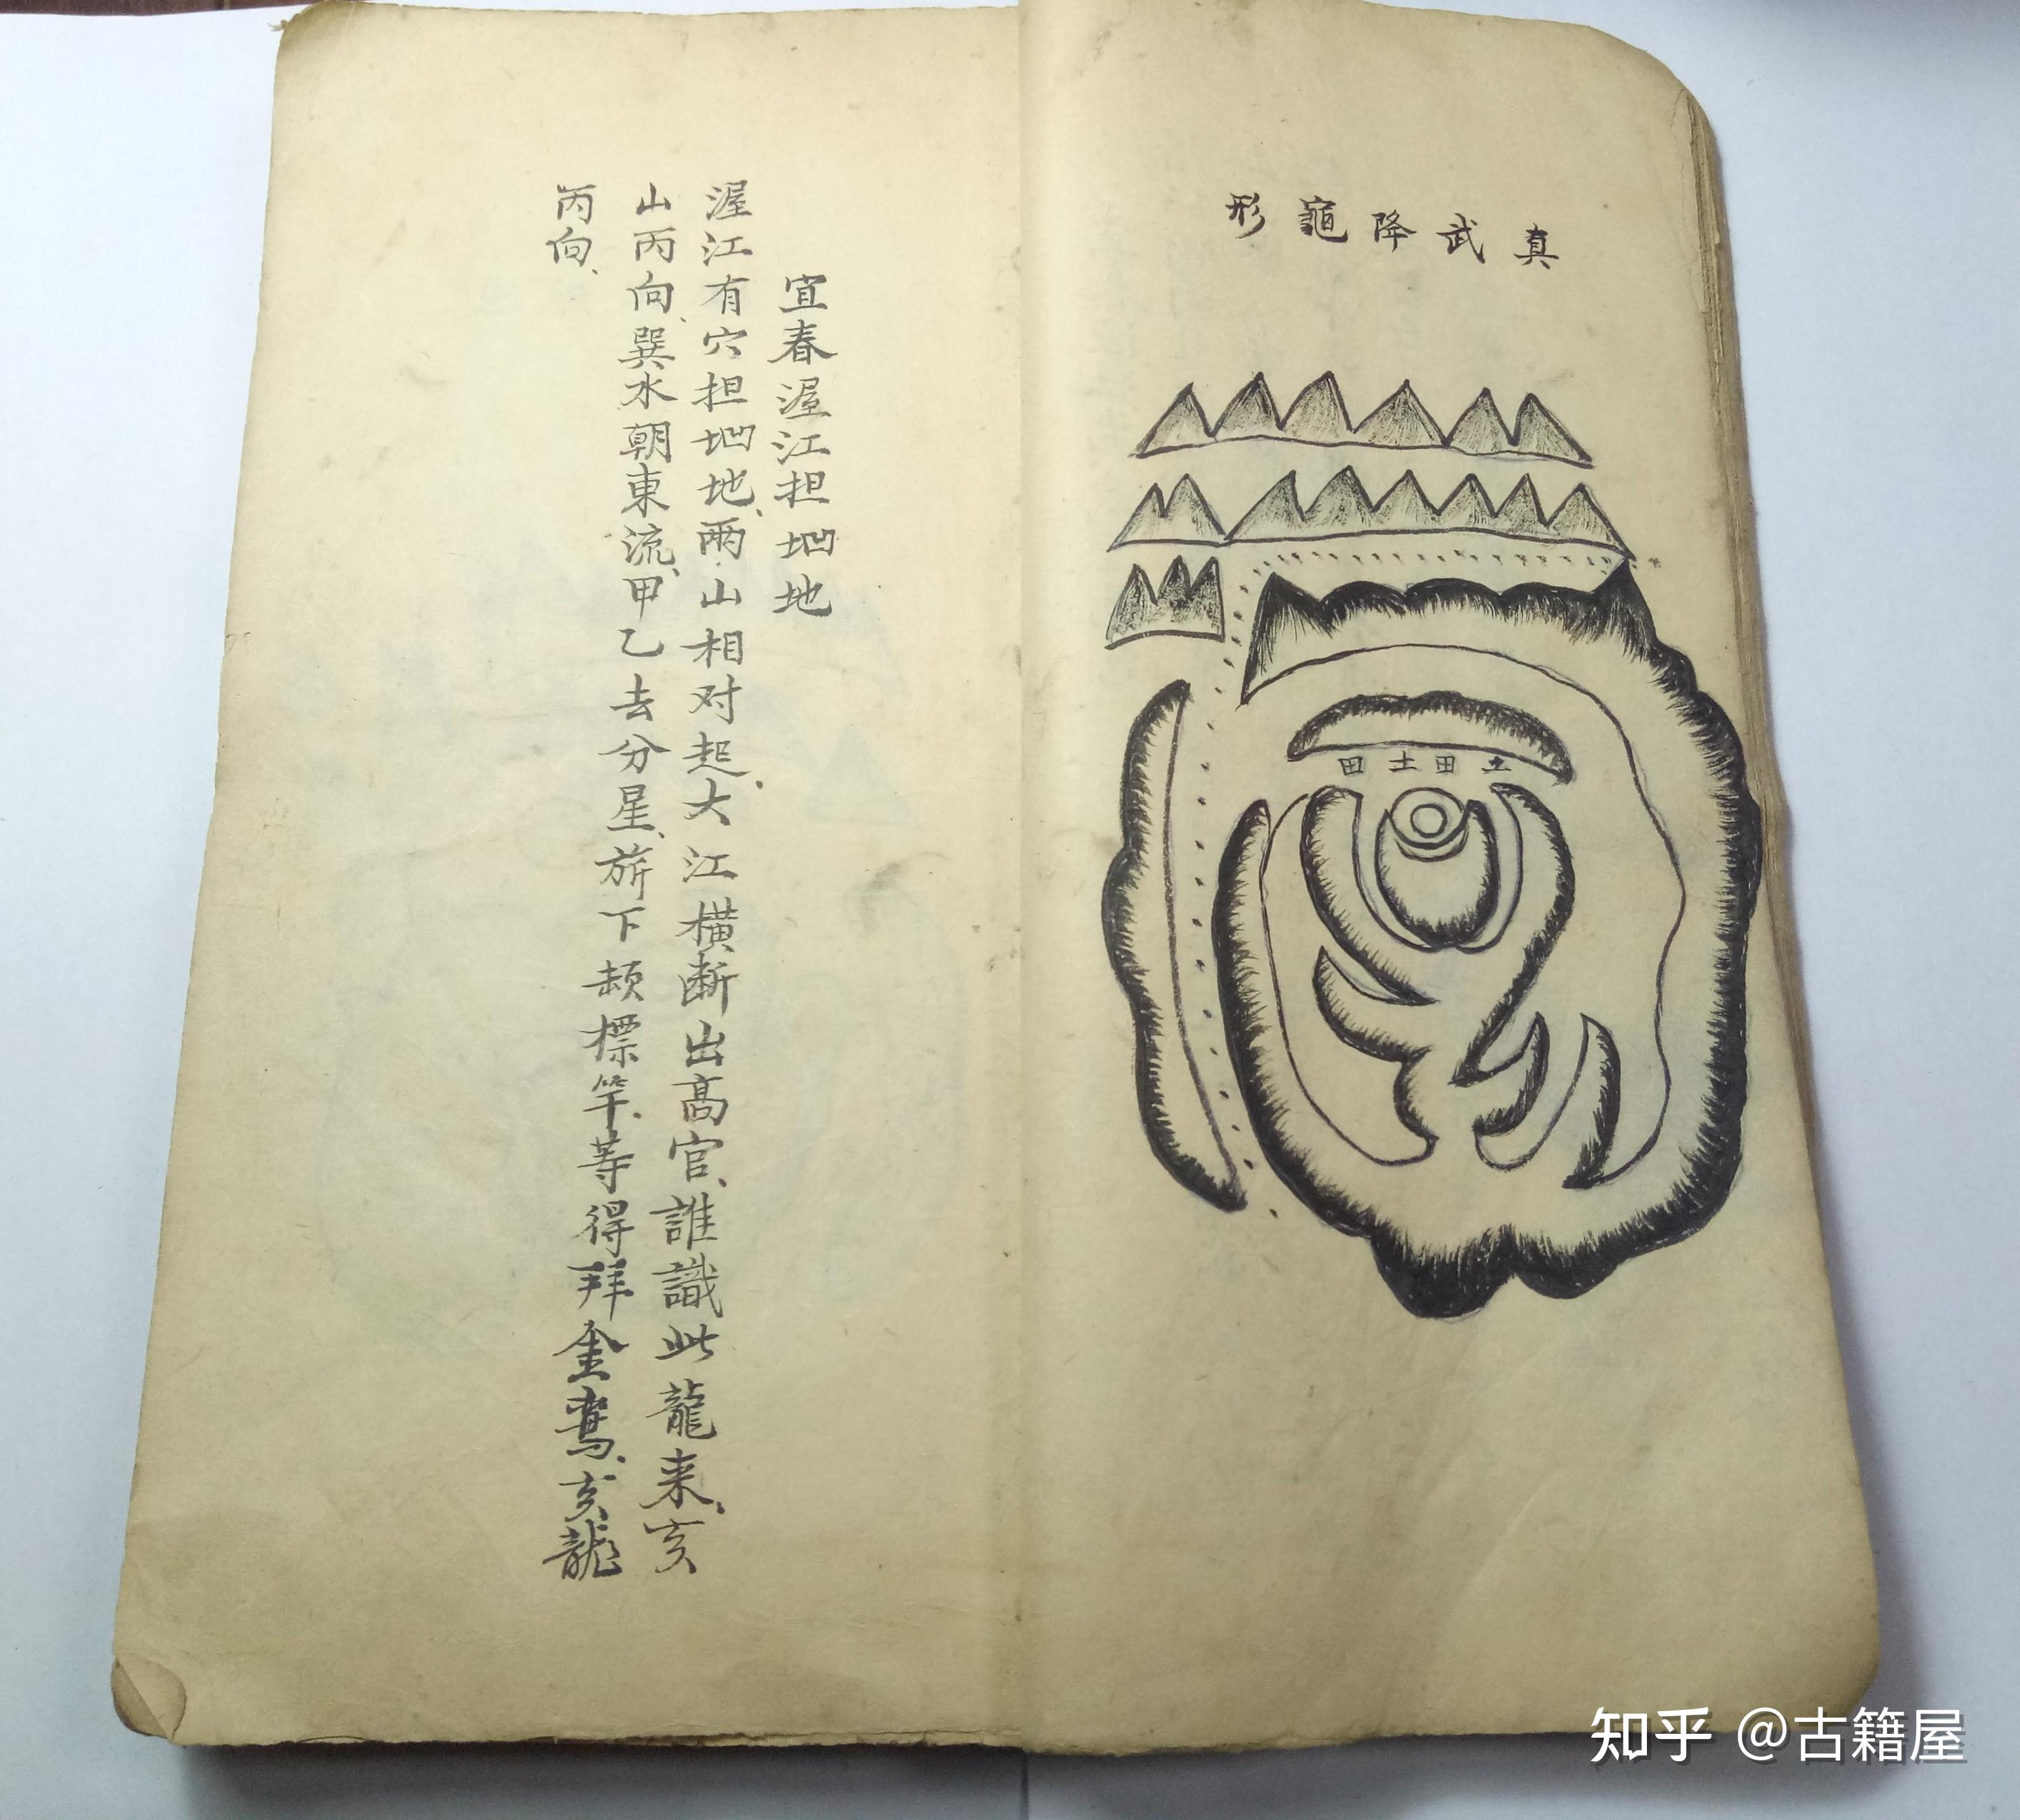 真武降龜形
田土田土
宜春渥江担㘭地
渥江有穴担㘭地、兩山相对起、大江橫断出高官、誰識此龍来、亥
山丙向、巽水朝東流、甲乙去分星、旂下頼標竿、等得拜金鸾、亥龍
丙向、
知乎 @古籍屋